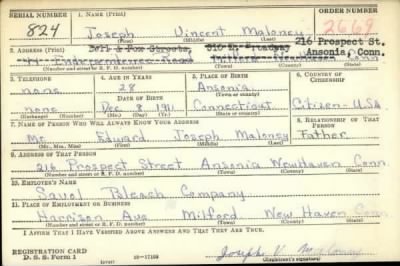 SERIAL NUMBER 1. NAME (Print) ORDER NUMBER
824 Joseph Vincent Maloney 2669
(First) (Middle) (Last)
Bell & Fox Streets, 216 Prospect St.
2. ADDRESS (Print) Ansonia, Conn.
Independence Road Milford New Haven Conn
(Number and street or R. F. D. number) (Town) (County) (State)
3. TELEPHONE 4. AGE IN YEARS 5. PLACE OF BIRTH 6. COUNTRY OF CITIZENSHIP
none 28 Ansonia
DATE OF BIRTH (Town or county)
none Dec 9 1911 Connecticut Citizen-USA
(Exchange) (Number) (Mo.) (Day) (Yr.) (State or country)
7. NAME OF PERSON WHO WILL ALWAYS KNOW YOUR ADDRESS 8. RELATIONSHIP OF THAT PERSON
Mr. Edward Joseph Maloney Father
(Mr., Mrs., Miss) (First) (Middle) (Last)
9. ADDRESS OF THAT PERSON
216 Prospect Street Ansonia New Haven Conn.
(Number and street or R. F. D. number) (Town) (County) (State)
10. EMPLOYER'S NAME
Savol Bleach Company
11. PLACE OF EMPLOYMENT OR BUSINESS
Harrison Ave Milford New Haven Conn
(Number and street or R. F. D. number) (Town) (County) (State)
I AFFIRM THAT I HAVE VERIFIED ABOVE ANSWERS AND THAT THEY ARE TRUE.
REGISTRATION CARD
D. S. S. Form 1 16-17105 Joseph V. Maloney
(Registrant's signature)